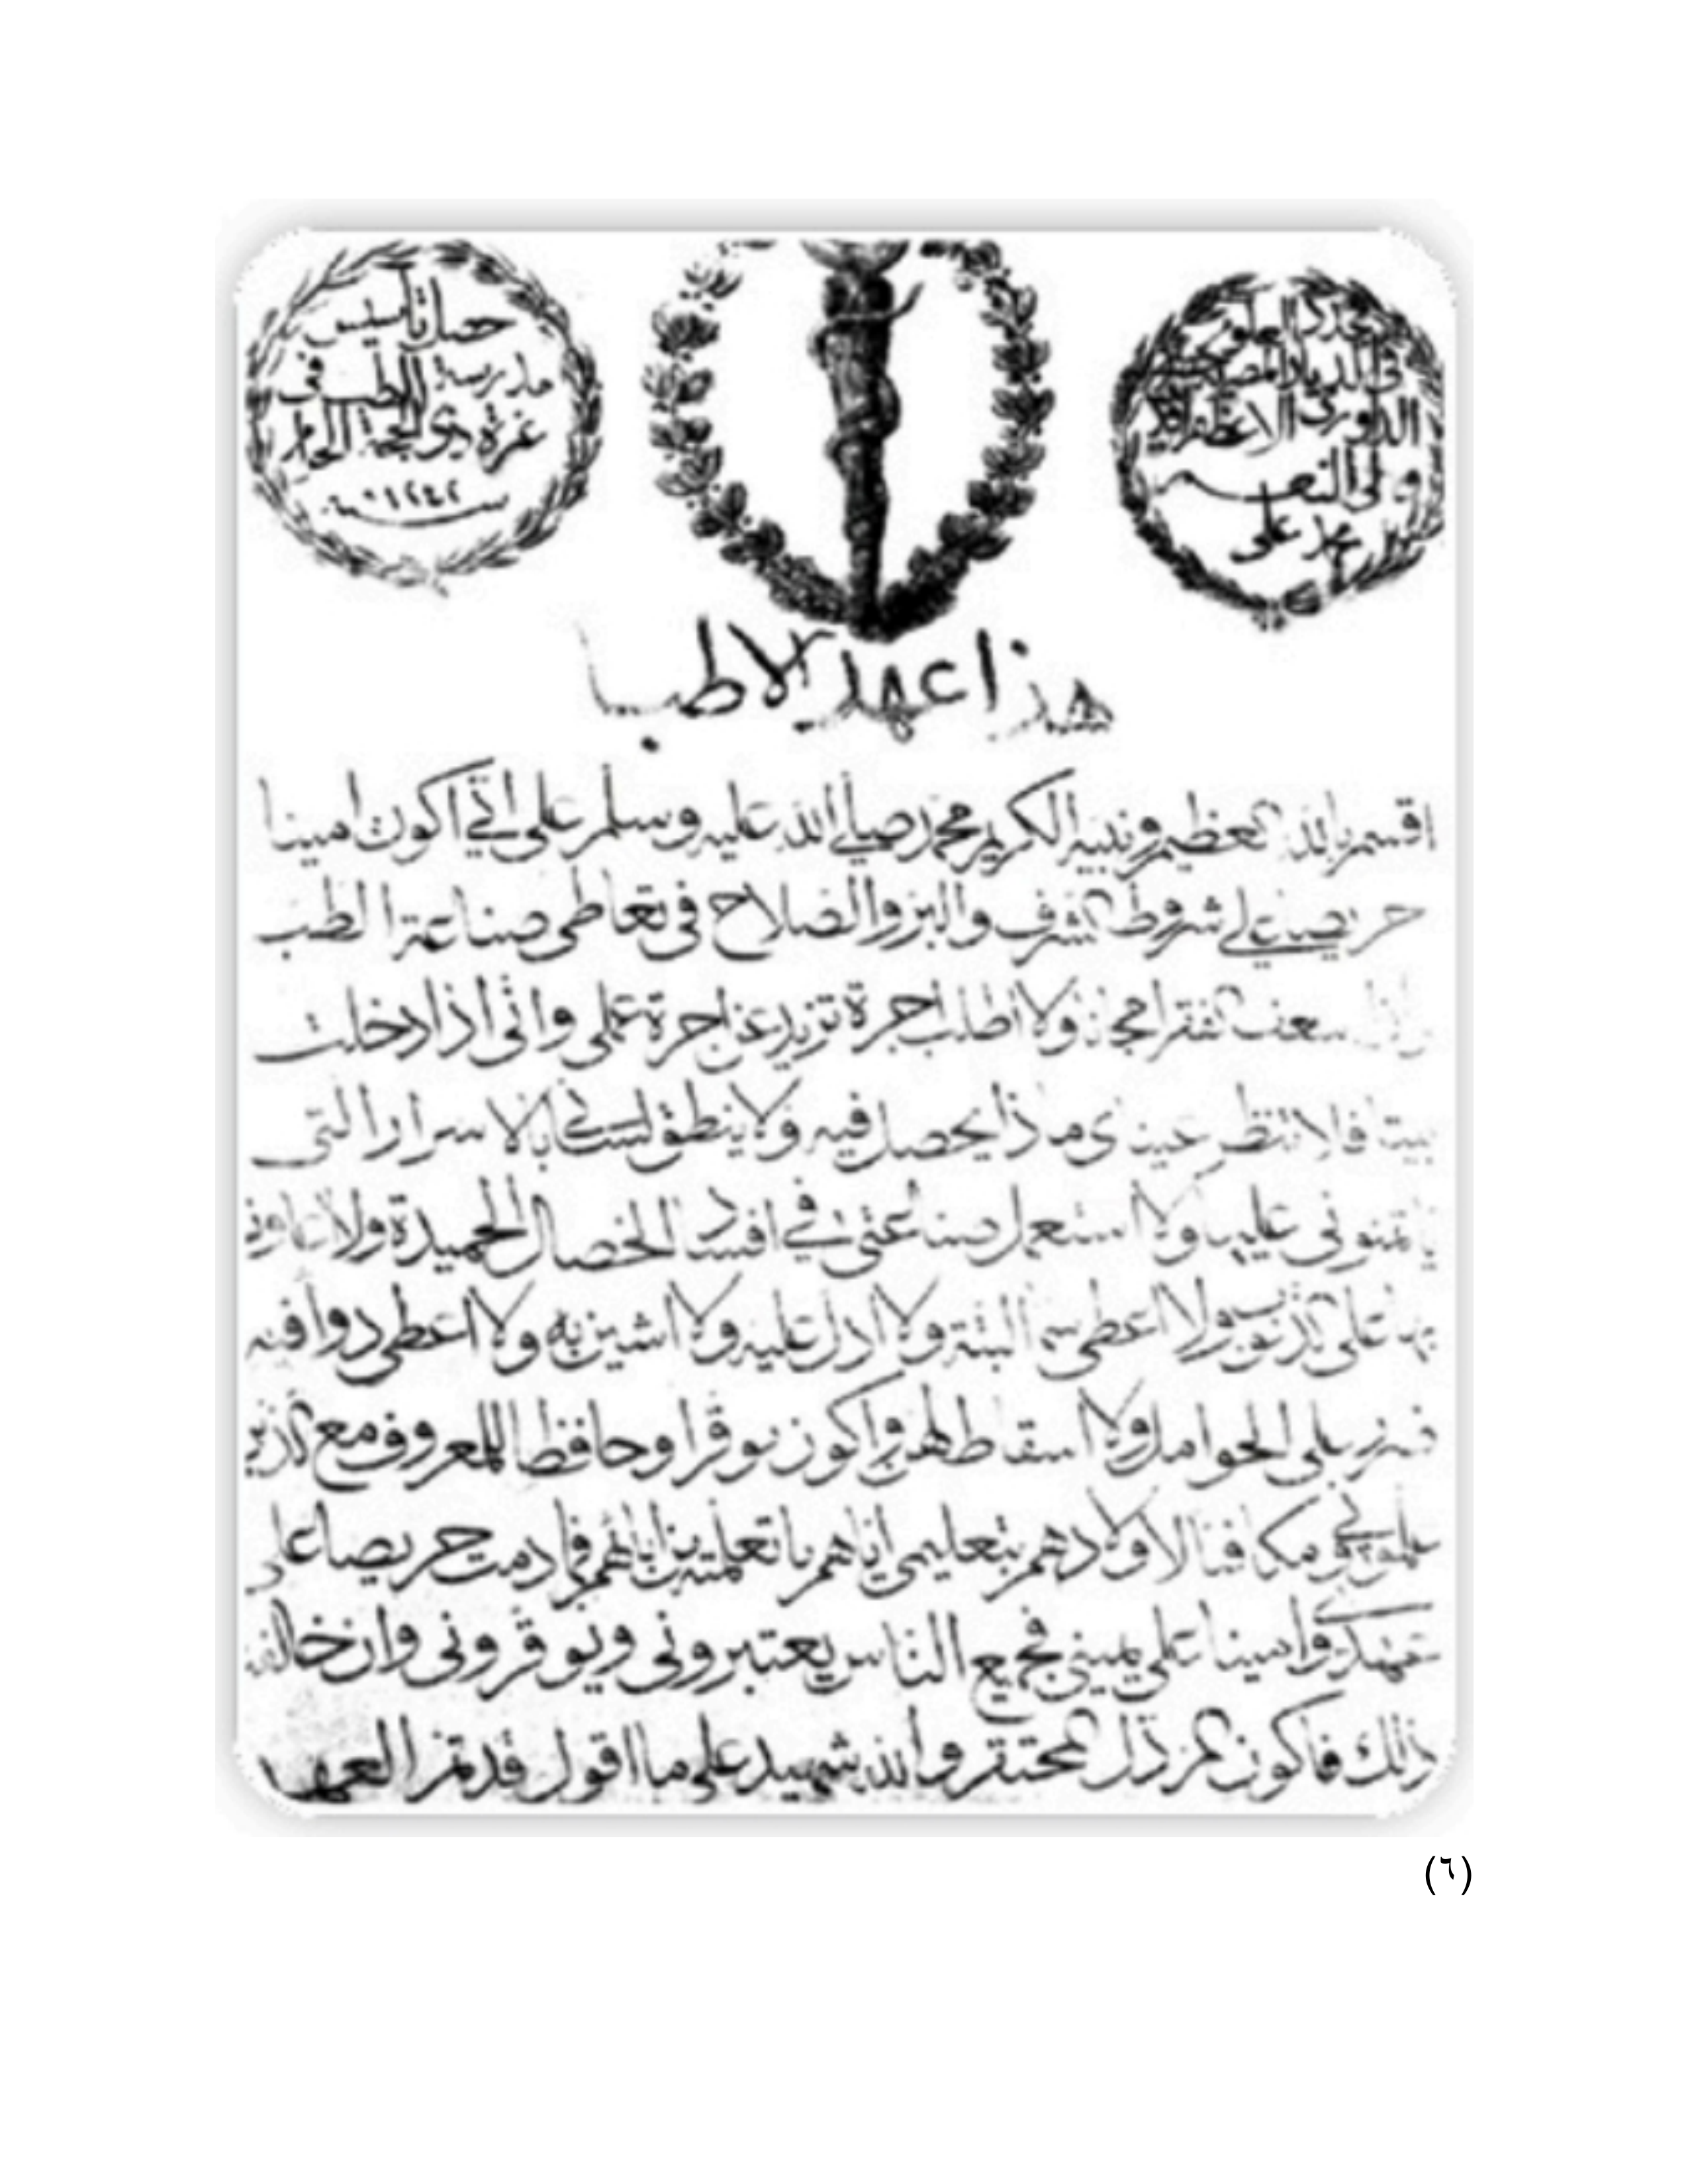 مجدد العلوم
في الديار المصرية
الداوري الاعظم
ولي النعم
محمد علي
حصل تأسيس
مدرسة الطب في
غرة ذي الحجة الحرام
سنة ١٢٤٢
هذا عهد الاطبا
اقسم بالله العظيم ونبيه الكريم محمد صلى الله عليه وسلم على اني اكون امينا
حريصا على شروط الشرف والبر والصلاح في تعاطي صناعة الطب
وان اسعف الفقرا مجانا ولا اطلب اجرة تزيد عن اجرة عملي واني اذا دخلت
بيتا فلا تنظر عيناي ماذا يحصل فيه ولا ينطق لساني بالاسرار التي
ياتمنوني عليها ولا استعمل صناعتي في افساد الخصال الحميدة ولا اعاون
بها على الذنوب ولا اعطي سما البتة ولا ادل عليه ولا اشير به ولا اعطي دوا فيه
ضرر على الحوامل ولا اسقاط لهن واكون موقرا وحافظا للمعروف مع الذين
علموني ومكافئا لاولادهم بتعليمي اياهم ما تعلمته من ابائهم فما دمت حريصا على
عهدي وامينا على يميني فجميع الناس يعتبروني ويوقروني وان خالفت
ذلك فاكون المرذل المحتقر والله شهيد على ما اقول قد تم العهد
(٦)